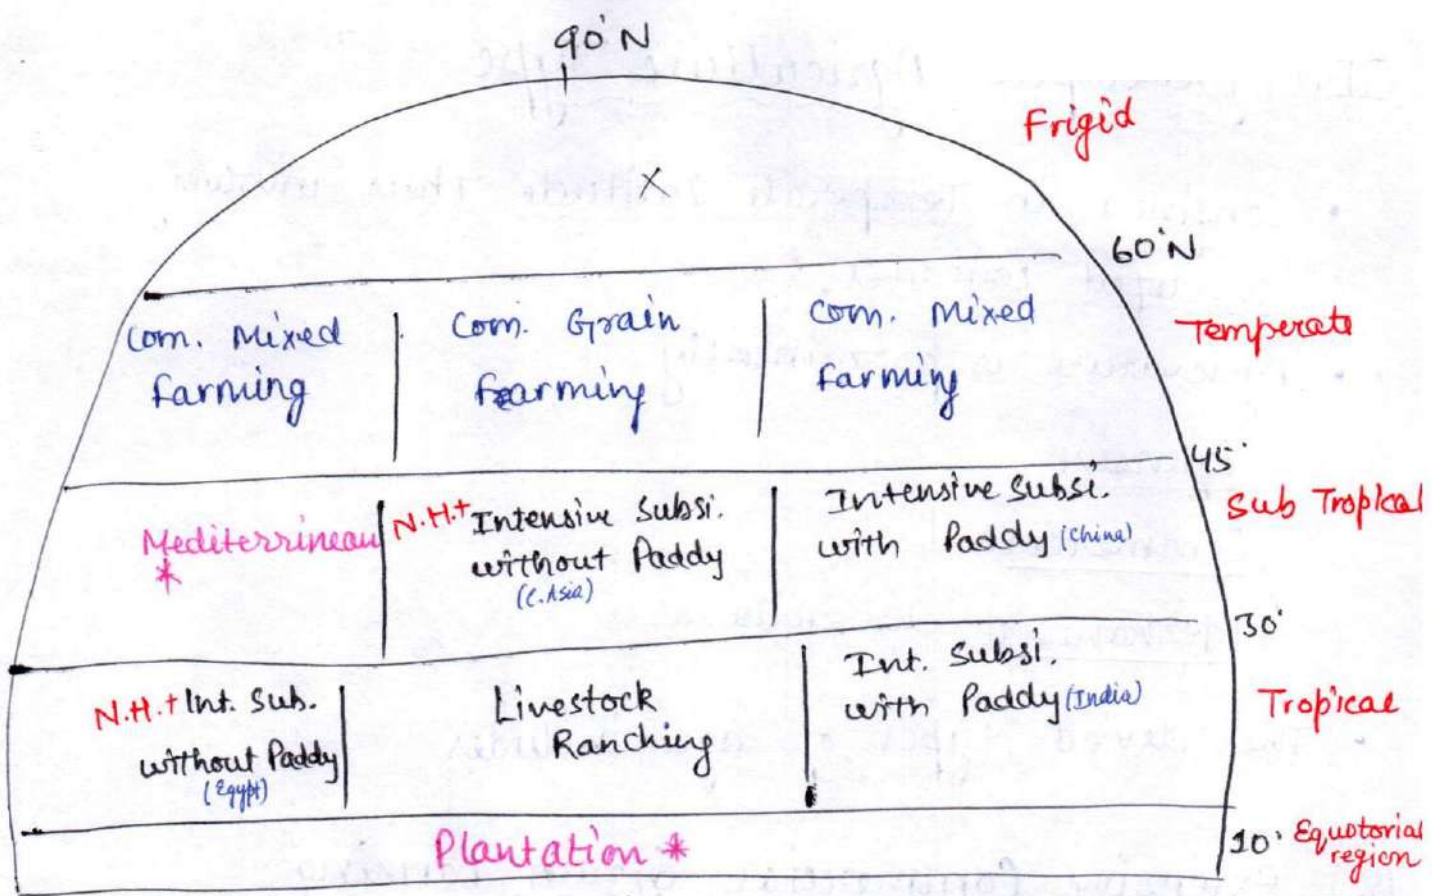 90°N
Frigid
X
60°N
Com. Mixed
farming
Com. Grain
farming
Com. Mixed
farming
Temperate
45°
Mediterrineau
*
N.H.+ Intensive Subsi.
without Paddy
(C. Asia)
Intensive Subsi.
with Paddy (China)
Sub Tropical
30°
N.H.+ Int. Sub.
without Paddy
(Egypt)
Livestock
Ranching
Int. Subsi.
with Paddy (India)
Tropical
Plantation *
10° Equotorial
region